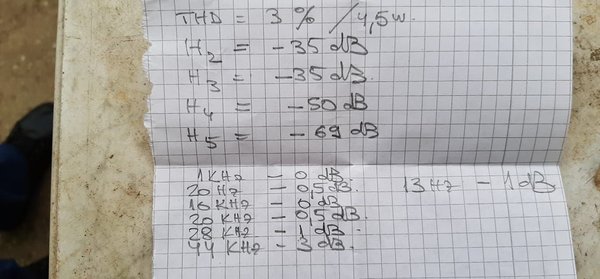 THD = 3 % / 4,5 w.
H2 = -35 dB
H3 = -35 dB.
H4 = -50 dB
H5 = -69 dB
1 KHz - 0 dB.
20 Hz - 0,5 dB. 13 Hz - 1 dB
16 KHz - 0, dB
20 KHz - 0,5 dB.
28 KHz - 1 dB.
44 KHz - 3 dB.